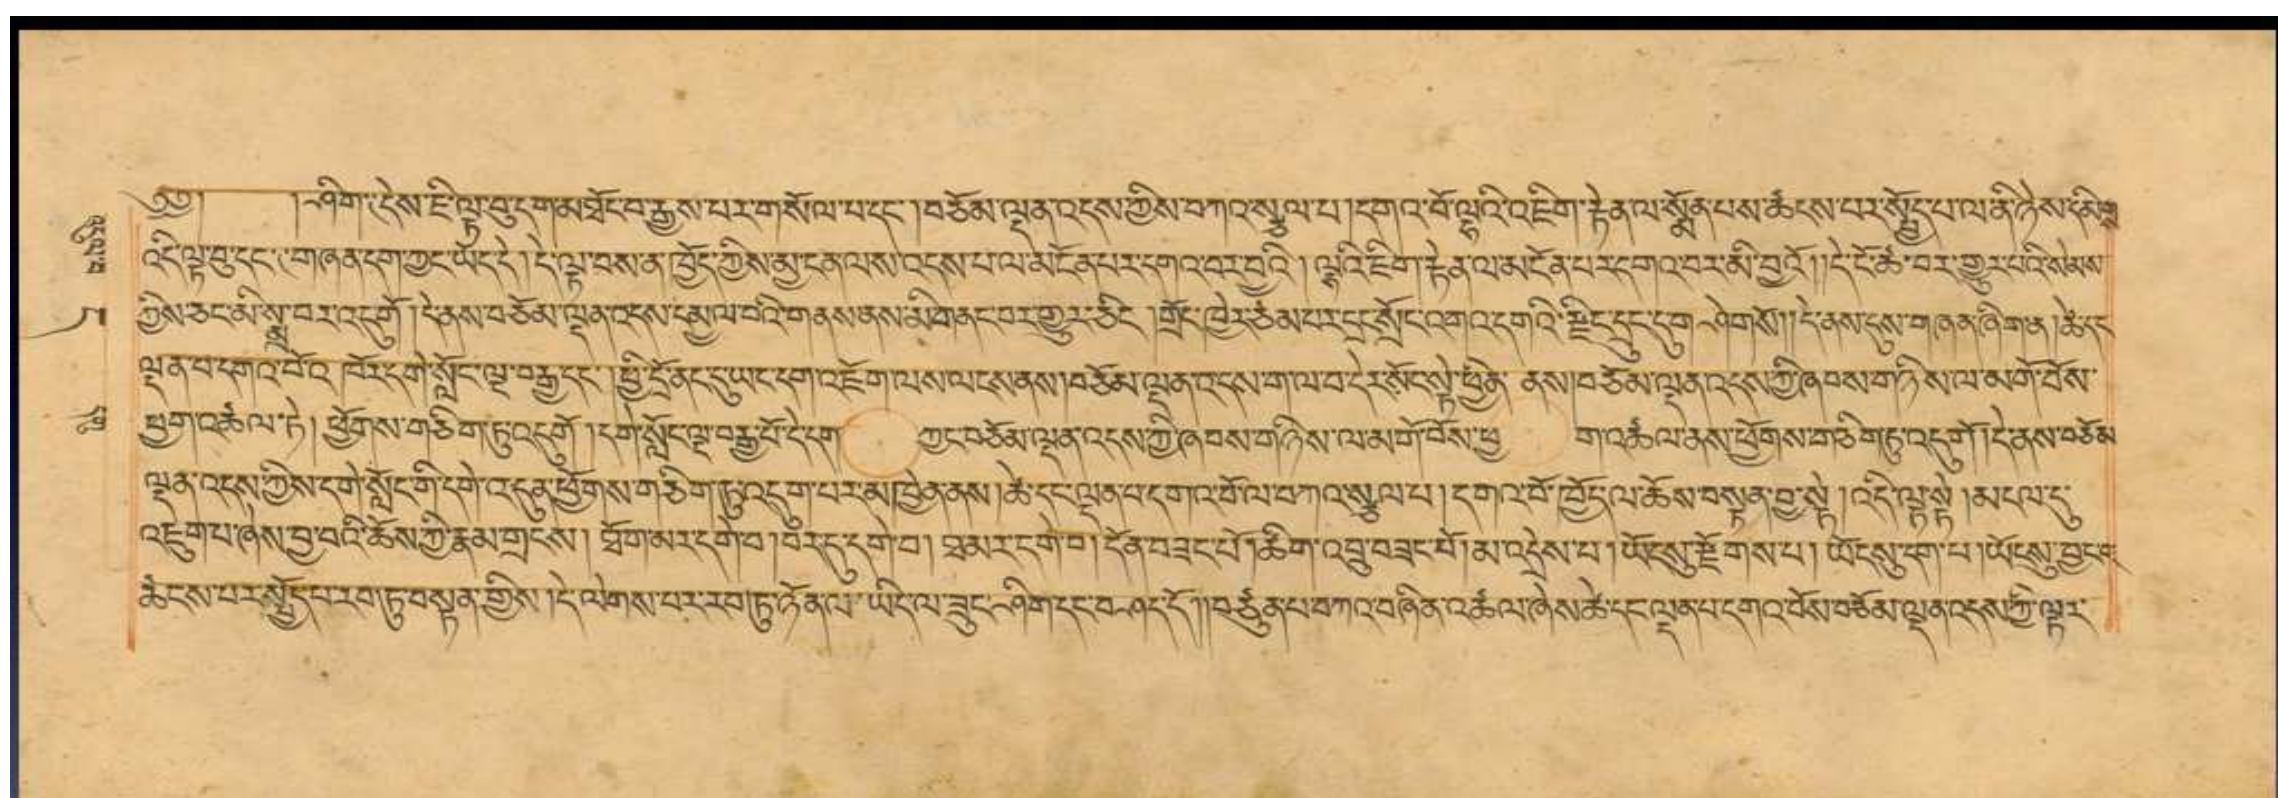 ༄༅། །ཤིག་དེས་ཇི་ལྟ་བུ་དག་མཐོང་བརྒྱས་པར་གསོལ་པ་དང་།བཅོམ་ལྡན་འདས་ཀྱིས་བཀའ་སྩལ་པ། དགའ་བོ་ལྷའི་འཇིག་རྟེན་ལ་སྨོན་པས་ཚངས་པར་སྤྱོད་པ་ལ་ནི་ཉེས་དམི
འདི་ལྟ་བུ་དང་གཞན་དག་ཀྱང་ཡོད་དེ། དེ་ལྟ་བས་ན་ཁྱོད་ཀྱིས་མྱ་ངན་ལས་འདས་པ་ལ་མངོན་པར་དགའ་བར་བྱའི། ལྷའི་འཇིག་རྟེན་ལ་མངོན་པར་དགའ་བར་མི་བྱའོ། །དེ་ངོ་ཚ་བར་གྱུར་པའི་སེམས
ཀྱིས་ཅང་མི་སྨྲ་བར་འདུགོ། དེ་ནས་བཅོམ་ལྡན་འདས་དམྱལ་བའི་གནས་ནས་མི་གནང་བར་གྱུར་ཅིང་། གྲོང་ཁྱེར་ཙམ་པར་དྲང་སྲོང་འགའ་དགའི་རྫིང་དྲུང་དུ་གཤེགསོ། །དེ་ནས་དུས་གཞན་ཞིག་ན། ཚེ་དང
ལྡན་པ་དགའ་བོ་འཁོར་དགེ་སློང་ལྔ་བརྒྱ་དང་། ཕྱི་དྲོ་ནང་དུ་ཡང་དག་འཇོག་ལས་ལངས་ནས། བཅོམ་ལྡན་འདས་ག་ལ་བ་དེར་སོང་སྟེ་ཕྱིན་ནས། བཅོམ་ལྡན་འདས་ཀྱི་ཞབས་གཉིས་ལ་མགོ་བོས་
ཕྱག་འཚལ་ཏེ། ཕྱོགས་གཅིག་ཏུ་འདུགོ། །དགེ་སློང་ལྔ་བརྒྱ་པོ་དེ་དག ཀྱང་བཅོམ་ལྡན་འདས་ཀྱི་ཞབས་གཉིས་ལ་མགོ་བོས་ཕྱ ག་འཚལ་ནས་ཕྱོགས་གཅིག་ཏུ་འདུགོ། །དེ་ནས་བཅོམ
ལྡན་འདས་ཀྱིས་དགེ་སློང་གི་དགེ་འདུན་ཕྱོགས་གཅིག་ཏུ་འདུག་པར་མཁྱེན་ནས། ཚེ་དང་ལྡན་པ་དགའ་བོ་ལ་བཀའ་སྩལ་པ། དགའ་བོ་ཁྱོད་ལ་ཆོས་བསྟན་བྱ་སྟེ། འདི་ལྟ་སྟེ། མངལ་དུ་
འཇུག་པ་ཞེས་བྱ་བའི་ཆོས་ཀྱི་རྣམ་གྲངས། ཐོག་མར་དགེ་བ། བར་དུ་དགེ་བ། ཐ་མར་དགེ་བ། དོན་བཟང་པོ། ཚིག་འབྲུ་བཟང་པོ། མ་འདྲེས་པ། ཡོངསུ་རྫོགས་པ། ཡོངསུ་དག་པ། ཡོངསུ་བྱང་བ
ཚངས་པར་སྤྱོད་པ་རབ་ཏུ་བསྟན་གྱིས། དེ་ལེགས་པར་རབ་ཏུ་ཉོན་ལ་ཡིད་ལ་ཟུང་ཤིག་དང་བཤད་དོ། །བཙུན་པ་བཀའ་བཞིན་འཚལ་ཞེས་ཚེ་དང་ལྡན་པ་དགའ་བོས་བཅོམ་ལྡན་འདས་ཀྱི་ལྟར་